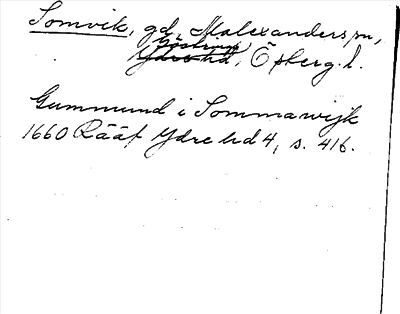 Somvik, gd, Malexanders sn,
Göstrings
Ydre hd, Öpberg. l.
Gummund i Sommawijk
1660 Rääf Ydre hd 4, s. 416.